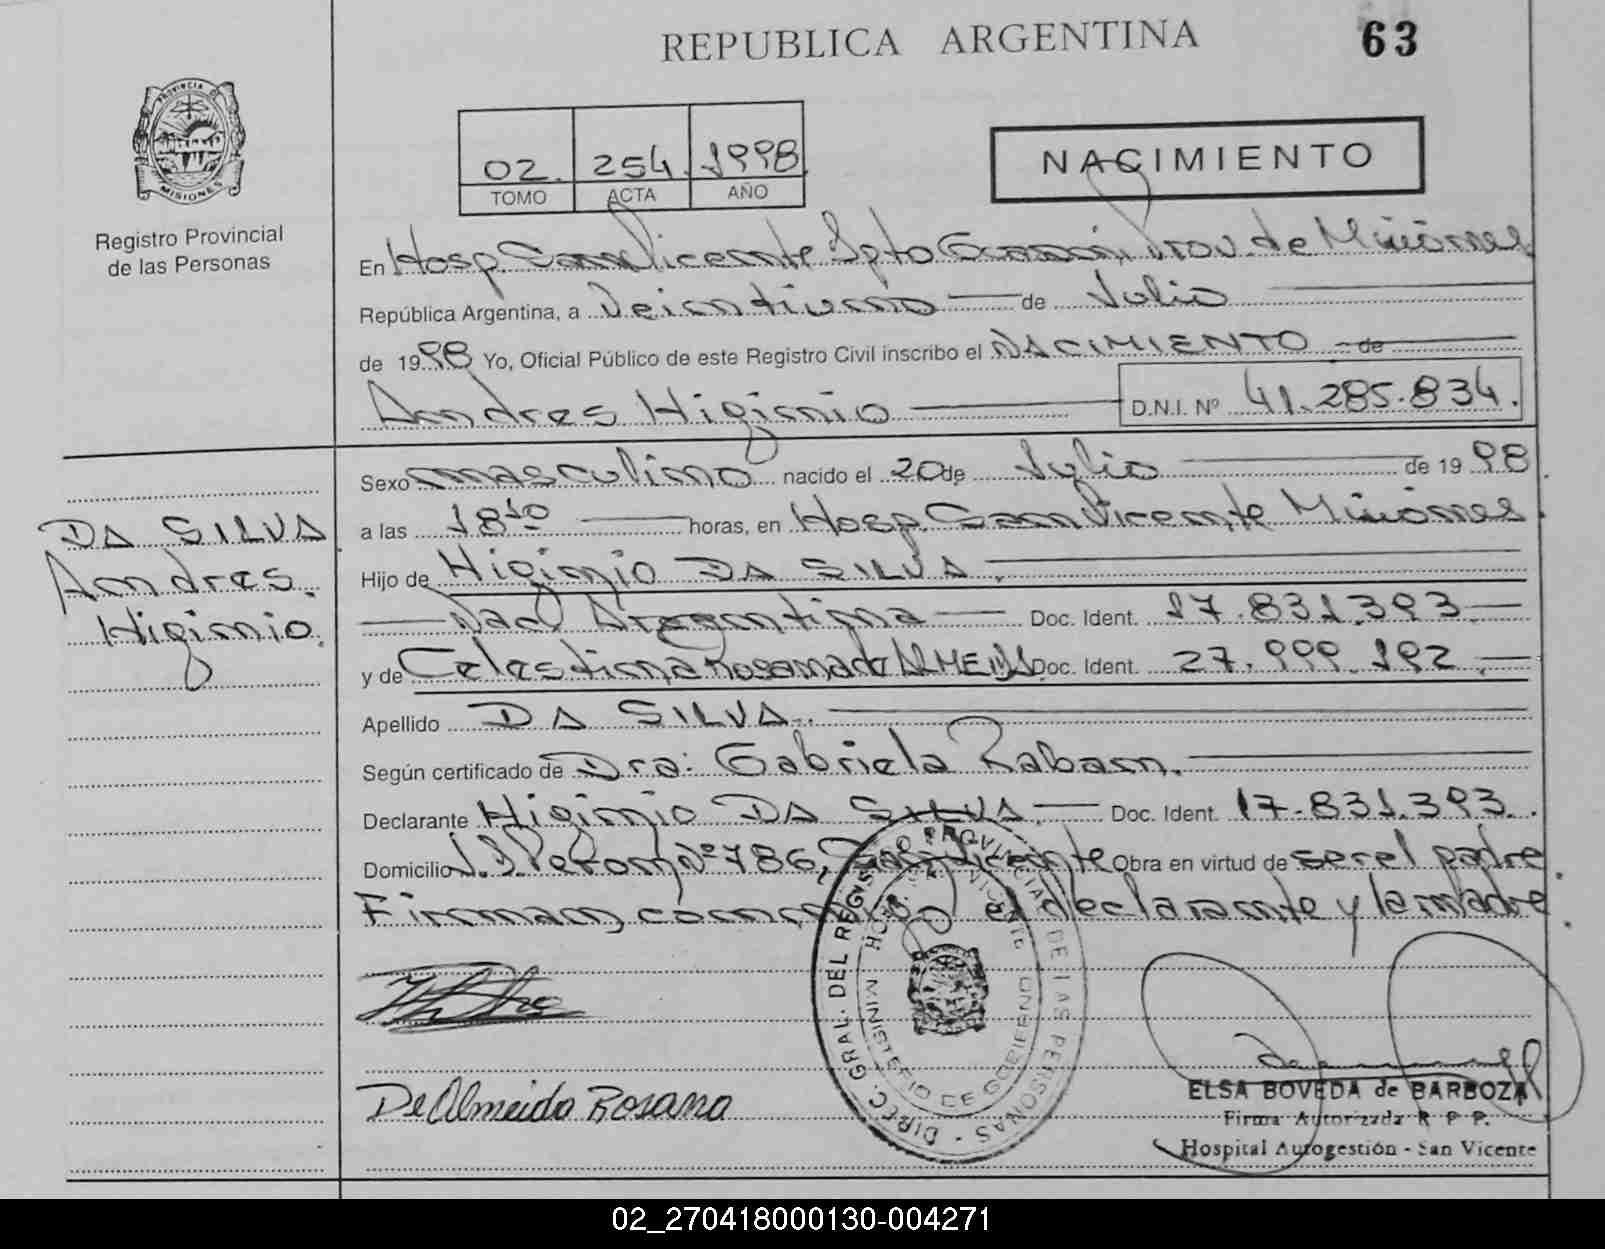 REPUBLICA ARGENTINA 63
PROVINCIA DE MISIONES
Registro Provincial
de las Personas
02. 254. 1998
TOMO ACTA AÑO
NACIMIENTO
En Hosp. San Vicente Dpto Guaraní, Prov. de Misiones
República Argentina, a Veintiuno de Julio
de 1998 Yo, Oficial Público de este Registro Civil inscribo el NACIMIENTO de
Andres Higinio D.N.I. Nº 41.285.834.
Sexo masculino nacido el 20 de Julio de 1998
a las 18 10 horas, en Hosp. San Vicente Misiones
Hijo de Higinio DA SILVA
Nac. Argentina Doc. Ident. 17.831.393
y de Celestina Rosana de ALMEIDA Doc. Ident. 27.999.192
Apellido DA SILVA
Según certificado de Dra: Gabriela Rabasn.
Declarante Higinio DA SILVA Doc. Ident. 17.831.393
Domicilio J.D. Peron Nº 786, San Vicente Obra en virtud de ser el padre
Firman, conmigo el declarante y la madre.
DA SILVA
Andres
Higinio.
De Almeida Rosana
DIREC. GRAL. DEL REGISTRO PROVINCIAL DE LAS PERSONAS
MINISTERIO DE GOBIERNO
ELSA BOVEDA de BARBOZA
Firma Autorizada R P P.
Hospital Autogestión - San Vicente
02_270418000130-004271